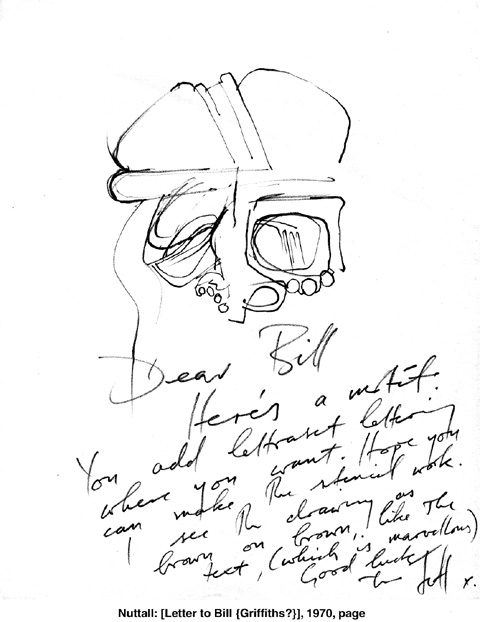 Dear Bill
Here's a motif.
You add lettraset lettering
where you want. Hope you
can make the stencil work.
I see the drawing as
brown on brown, like the
text, (which is marvellous)
Good luck
Jeff x.
Nuttall: [Letter to Bill {Griffiths?}], 1970, page